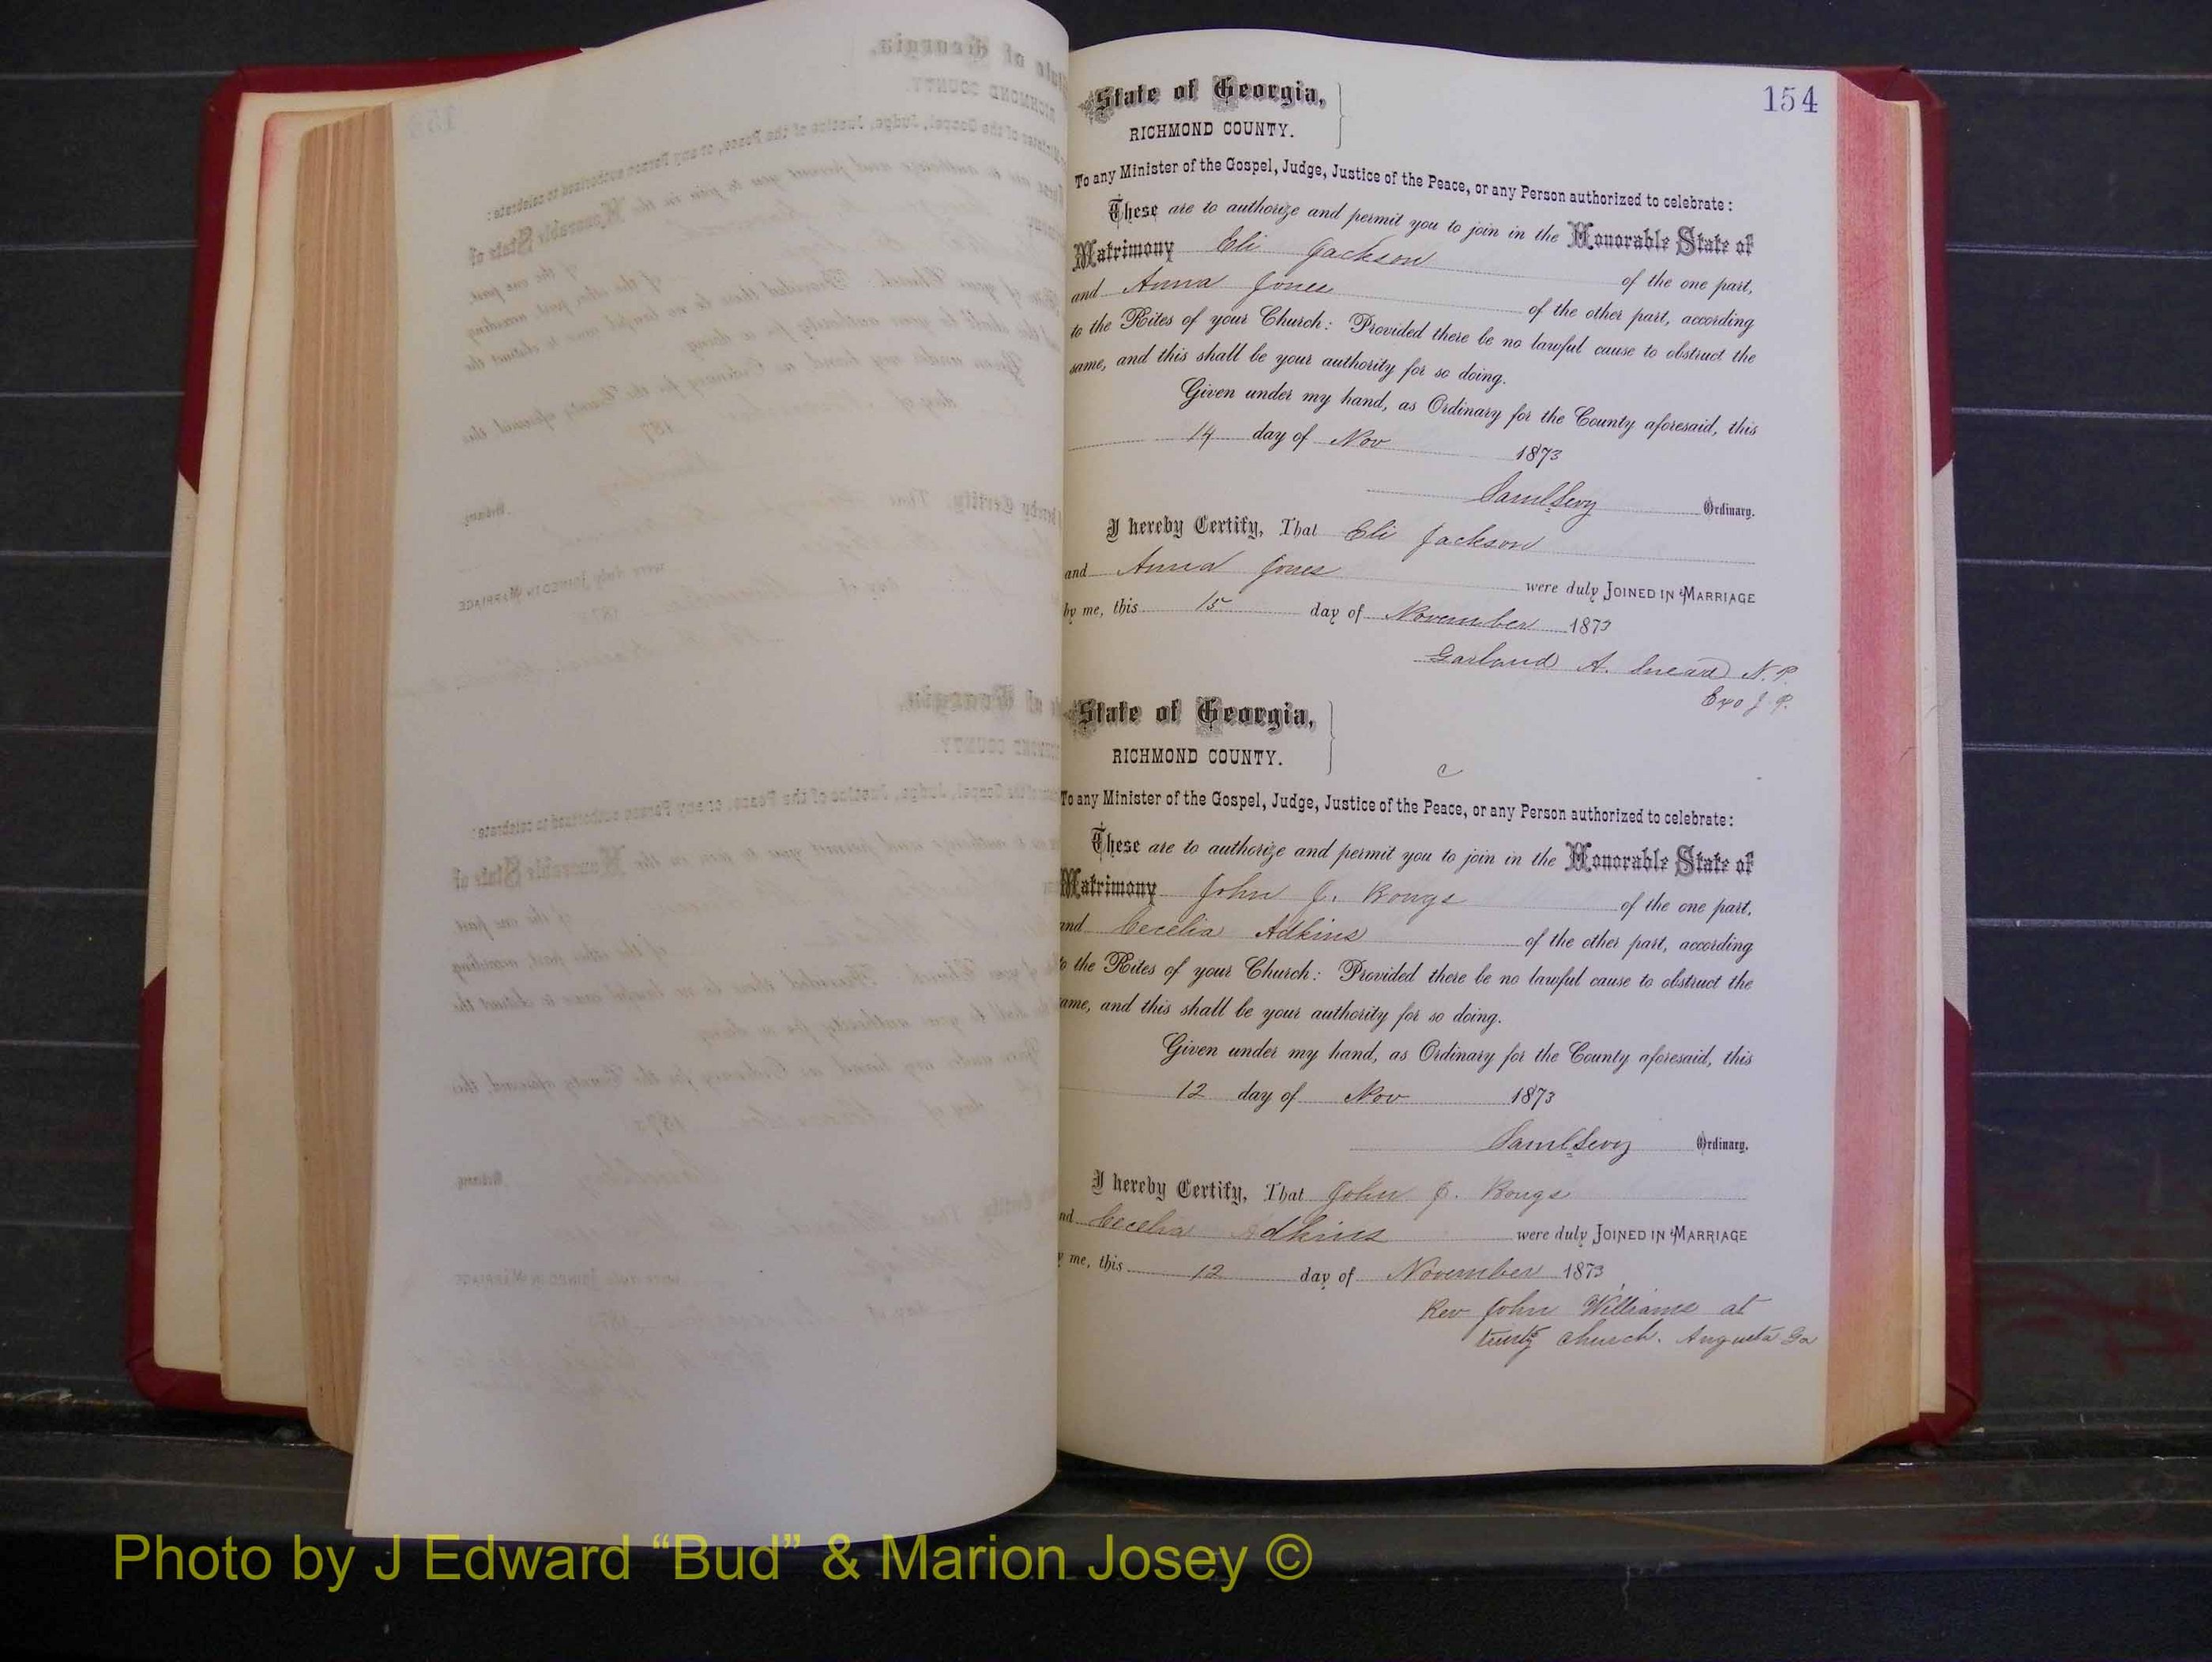 154
State of Georgia,
RICHMOND COUNTY.
To any Minister of the Gospel, Judge, Justice of the Peace, or any Person authorized to celebrate:
These are to authorize and permit you to join in the Honorable State of
Matrimony Eli Jackson of the one part,
and Anna Jones of the other part, according
to the Rites of your Church: Provided there be no lawful cause to obstruct the
same, and this shall be your authority for so doing.
Given under my hand, as Ordinary for the County aforesaid, this
14 day of Nov 1873
Saml Levy Ordinary.
I hereby Certify, That Eli Jackson
and Anna Jones were duly JOINED IN MARRIAGE
by me, this 15 day of November 1873
Garland A. Snead N. P.
Exo J. P.
State of Georgia,
RICHMOND COUNTY.
To any Minister of the Gospel, Judge, Justice of the Peace, or any Person authorized to celebrate:
These are to authorize and permit you to join in the Honorable State of
Matrimony John J. of the one part,
and Cecelia Adkins of the other part, according
to the Rites of your Church: Provided there be no lawful cause to obstruct the
ame, and this shall be your authority for so doing.
Given under my hand, as Ordinary for the County aforesaid, this
12 day of Nov 1873
Saml Levy Ordinary.
I hereby Certify, That John J.
nd Cecelia Adkins were duly JOINED IN MARRIAGE
me, this 12 day of November 1873
Rev John Williams at
church. Augusta Ga
Photo by J Edward “Bud” & Marion Josey ©